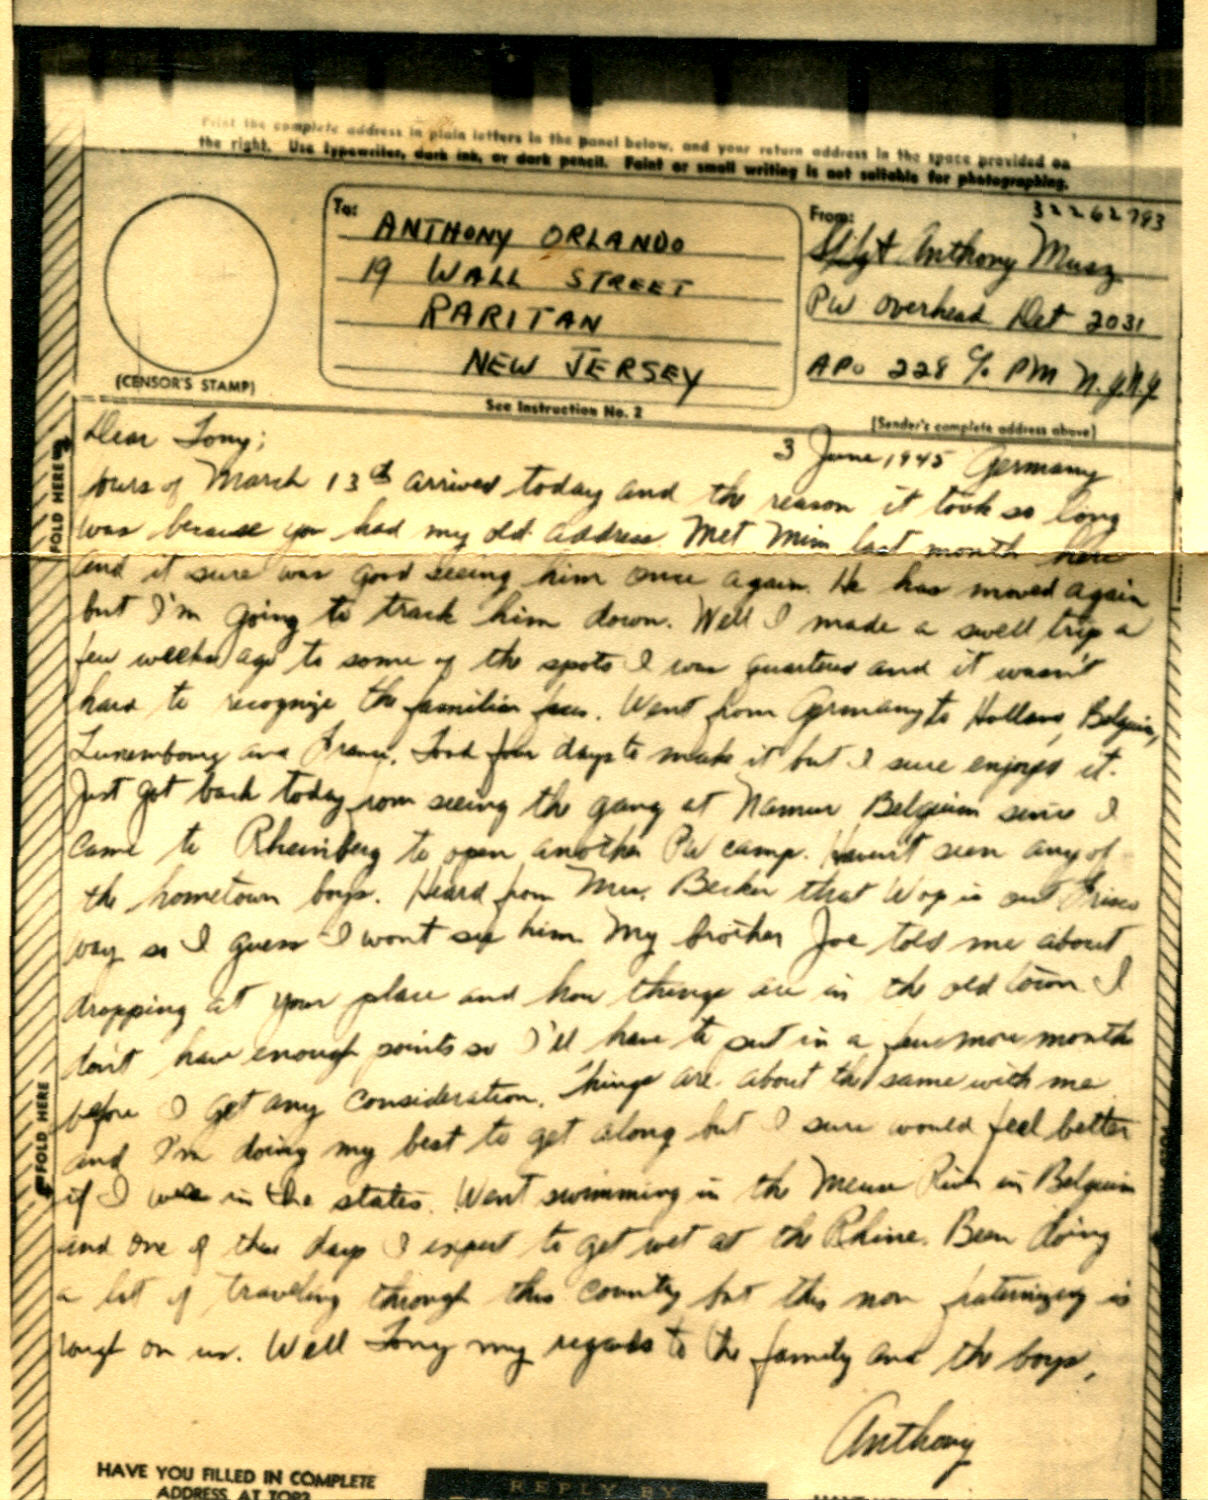 Print the complete address in plain letters in the panel below, and your return address in the space provided on
the right. Use typewriter, dark ink, or dark pencil. Faint or small writing is not suitable for photographing.
(CENSOR'S STAMP)
To:
ANTHONY ORLANDO
19 WALL STREET
RARITAN
NEW JERSEY
See Instruction No. 2
From:
32262793
S/Sgt Anthony Musz
PW Overhead Det 2031
APO 228 c/o PM N.Y.N.Y
(Sender's complete address above)
FOLD HERE
FOLD HERE
3 June 1945 Germany
Dear Tony;
Yours of March 13th arrived today and the reason it took so long
was because you had my old address. Met Mim last month here
and it sure was good seeing him once again. He has moved again
but I'm going to track him down. Well I made a swell trip a
few weeks ago to some of the spots I was quartered and it wasn't
hard to recognize the familiar faces. Went from Germany to Holland, Belgium,
Luxembourg and France. Took four days to make it but I sure enjoyed it.
Just got back today from seeing the gang at Namur Belgium since I
came to Rheinberg to open another PW camp. Haven't seen any of
the hometown boys. Heard from Mrs. Becker that Wop is out Frisco
way so I guess I wont see him. My brother Joe told me about
dropping at your place and how things are in the old town. I
don't have enough points so I'll have to put in a few more months
before I get any consideration. Things are about the same with me
and I'm doing my best to get along but I sure would feel better
if I was in the states. Went swimming in the Meuse River in Belgium
and one of these days I expect to get wet at the Rhine. Been doing
a lot of traveling through this country but this non fraternizing is
rough on us. Well Tony my regards to the family and the boys,
Anthony
HAVE YOU FILLED IN COMPLETE
ADDRESS AT TOP?
REPLY BY